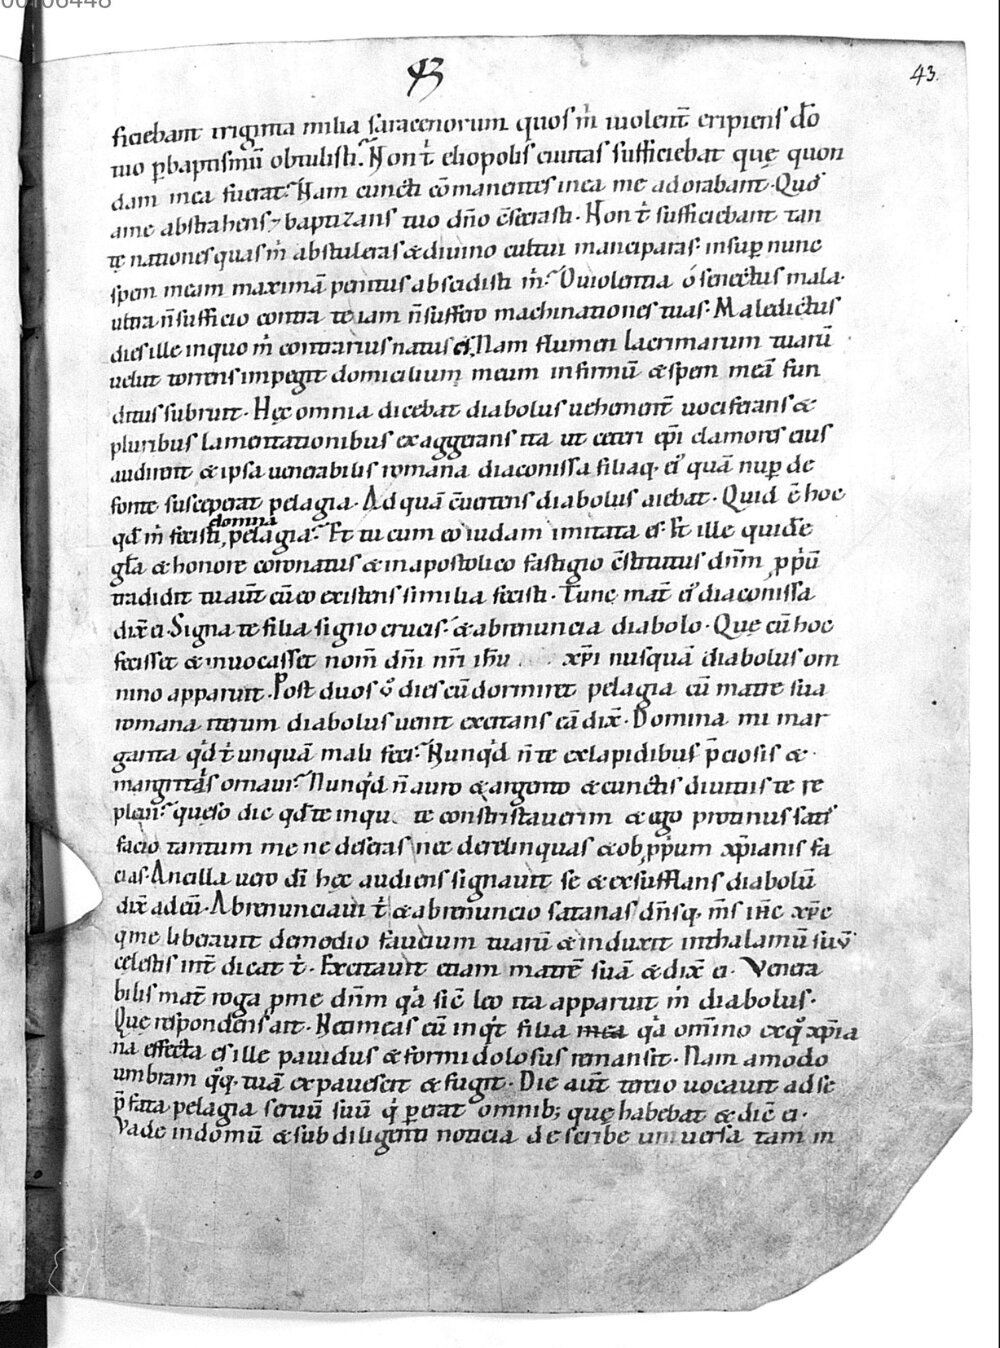 00106448
43
43.
ficiebant triginta milia saracenorum quos m̄ uiolent̄ eripiens dō
tuo p̱ baptismū obtulisti. Non t̄ eliopolis ciuitas sufficiebat quę quon
dam mea fuerat. Nam cuncti cōmanentes in ea me adorabant. Quos
a me abstrahens & baptizans tuo dn̄o c̄secrasti. Non t̄ sufficiebant tan
tę nationes quas m̄ abstuleras & diuino cultui manciparas. insup̱ nunc
spem meam maximā penitus abscidisti m̄. O uiolentia o senectus mala.
ultra n̄ sufficio contra te iam n̄ suffero machinationes tuas. Maledictus
dies ille in quo m̄ contrarius natus es. Nam flumen lacrimarum tuarū
uelut torrens impegit domicilium meum infirmū & spem meā fun
ditus subruit. Hęc omnia dicebat diabolus uehement̄ uociferans &
pluribus lamentationibus exaggerans ita ut ceteri ep̄i clamores eius
audirent & ipsa uenerabilis romana diaconissa filiaq. ei' quā nup̱ de
fonte susceperat pelagia. Ad quā c̄uertens diabolus aiebat. Quid ē hoc
qd̄ m̄ fecisti domna pelagia. Et tu cum eo iudam imitata es. Et ille quidē
gl̄a & honore coronatus & in apostolico fastigio c̄stitutus dn̄m pp̄ū
tradidit tu aūt cū eo existens similia fecisti. Tunc mat̄ ei' diaconissa
dix̄ ei. Signa te filia signo crucis. & abrenuncia diabolo. Quę cū hoc
fecisset & inuocasset nom̄ dn̄i nr̄i ih̄u xp̄i nusquā diabolus om
nino apparuit. Post duos ū dies cū dormiret pelagia cū matre sua
romana iterum diabolus uenit excitans eā dix̄. Domina mi mar
garita qd̄ t̄ unquā mali feci. Nunqd̄ n̄ te ex lapidibus p̄ciosis &
margritas ornaui. Nunqd̄ n̄ auro & argento & cunctis diuitiis te re
pleui. queso dic qd̄ te in qu te constristauerim & ego protinus satis
facio tantum me ne deseras nec derelinquas & ob pp̄um xp̄ianis fa
cias. Ancilla uero dī hęc audiens signauit se & exsufflans diabolū
dix̄ ad eū. Abrenunciaui t̄ & abrenuncio satanas dn̄sq. m̄s ih̄c xp̄c
q me liberauit de medio faucium tuarū & induxit in thalamū suū
celestis int̄ dicat t̄. Excitauit etiam matrē suā & dix̄ ei. Venera
bilis mat̄ roga p̱ me dn̄m qa sic̄ leo ita apparuit m̄ diabolus.
Que respondens ait. Ne timeas eū inqt̄ filia mea qa om̄ino ex q xp̄ia
na effecta es ille pauidus & formidolosus remansit. Nam amodo
umbram qq. tuā expauescit & fugit. Die aūt tercio uocauit ad se
p̄fata pelagia seruū suū q p̱erat omnib; quę habebat & dic̄ ei.
Vade in domū & sub diligenti noticia describe uniuersa tam in